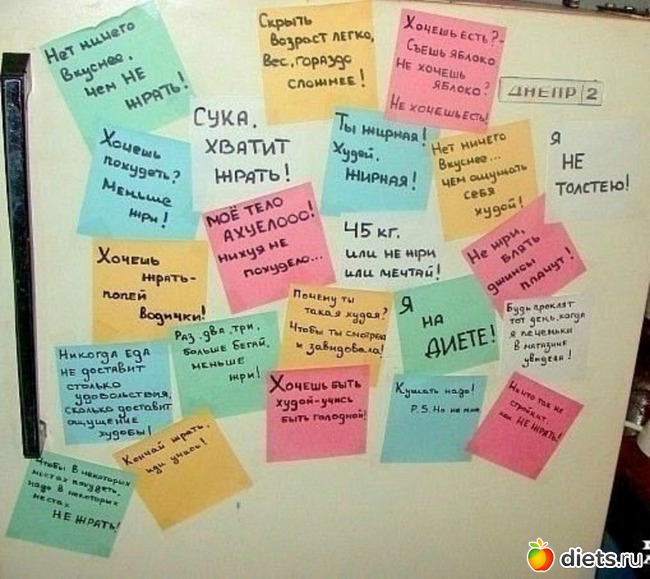 Нет ничего
вкуснее,
чем НЕ
ЖРАТЬ!
Скрыть
возраст легко,
Вес, гораздо
сложнее!
Хочешь есть?-
Съешь яблоко
Не хочешь
яблоко?
Не хочешь есть!
ДНЕПР 2
Хочешь
похудеть?
Меньше
жри!
СУКА,
ХВАТИТ
ЖРАТЬ!
Ты жирная!
Худей,
ЖИРНАЯ!
Нет ничего
вкуснее...
чем ощущать
себя
худой!
Я
НЕ
ТОЛСТЕЮ!
МОЁ ТЕЛО
АХУЕЛООО!
НИХУЯ НЕ
ПОХУДЕЛО...
45 кг.
ИЛИ НЕ ЖРИ
ИЛИ МЕЧТАЙ!
Не жри,
БЛЯТЬ
джинсы
плачут!
Хочешь
жрать-
попей
водички!
Раз, два, три,
больше бегай,
меньше
жри!
Почему ты
такая худая?
Чтобы ты смотрела
и завидовала!
Я
НА
ДИЕТЕ!
Будь проклят
тот день, когда
я печеньки
в магазине
увидела!
Никогда ЕДА
не доставит
столько
удовольствия,
сколько доставит
ощущение
худобы!
Хочешь быть
худой-учись
быть голодной!
Кушать надо!
P.S. Но не мне
Ничто так не
стройнит
как НЕ ЖРАТЬ!
Кончай жрать,
иди учись!
Чтобы в некоторых
местах похудеть,
надо в некоторых
местах
НЕ ЖРАТЬ!
diets.ru